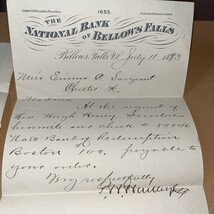 1853.
THE
NATIONAL BANK OF BELLOWS FALLS
Bellows Falls, Vt. July 18 1893
Miss Emma A Sargent
Chester Vt.
Madam
At the request of
Hon Hugh Henry I enclose
herewith our check # 8408
Natl Bank of Redemption
Boston $100. payable to
your order.
Very respectfully